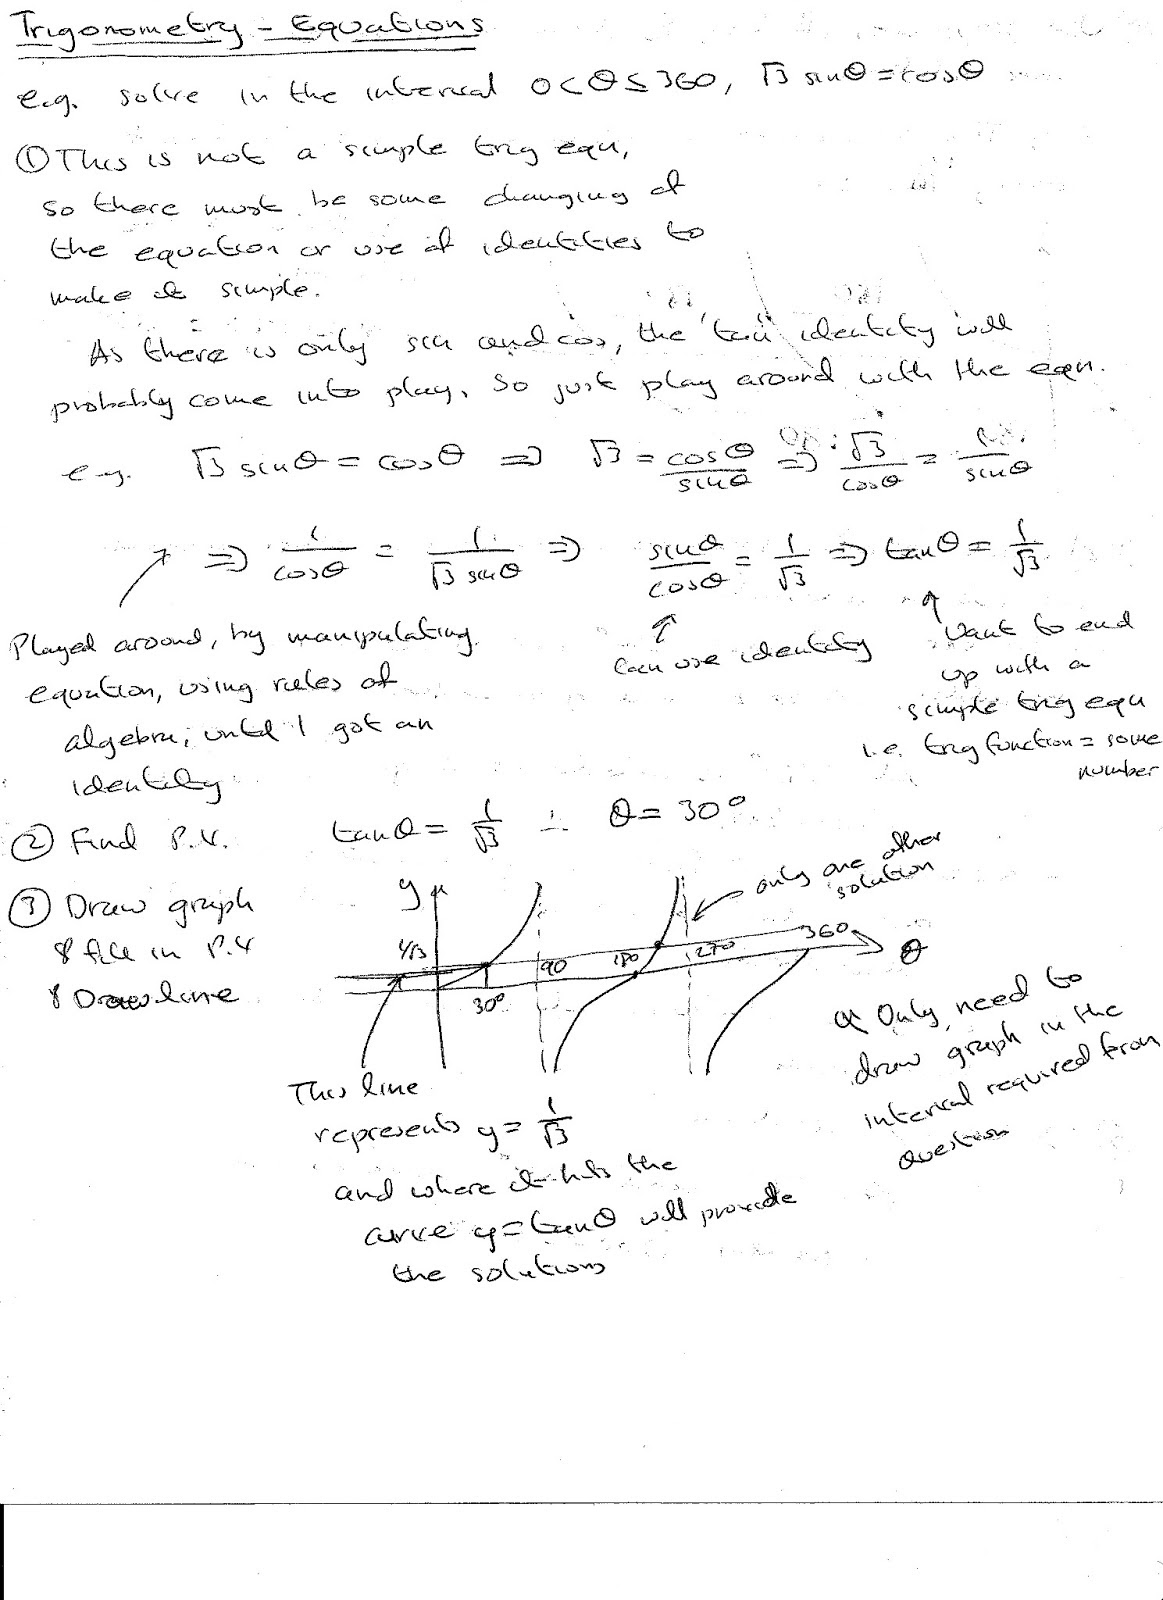 Trigonometry - Equations
e.g. solve in the interval 0<θ≤360, √3 sinθ = cosθ
① This is not a simple trig equn,
so there must be some changing of
the equation or use of identities to
make it simple.
As there is only sin and cos, the "tan" identity will
probably come into play. So just play around with the eqn.
e.g. √3 sinθ = cosθ ⇒ √3 = cosθ/sinθ ⇒ √3/cosθ = 1/sinθ
⇒ 1/cosθ = 1/(√3 sinθ) ⇒ sinθ/cosθ = 1/√3 ⇒ tanθ = 1/√3
Played around, by manipulating
equation, using rules of
algebra, until I got an
identity
Can use identity
Want to end
up with a
simple trig equn
i.e. trig function = some
number
② Find P.V. tanθ = 1/√3 ∴ θ = 30°
③ Draw graph
& fill in P.V
& Draw line
y
only one other
solution
1/√3
30°
90
180
270
360
θ
This line
represents y = 1/√3
and where it hits the
curve y = tanθ will provide
the solutions
Only need to
draw graph in the
interval required from
question